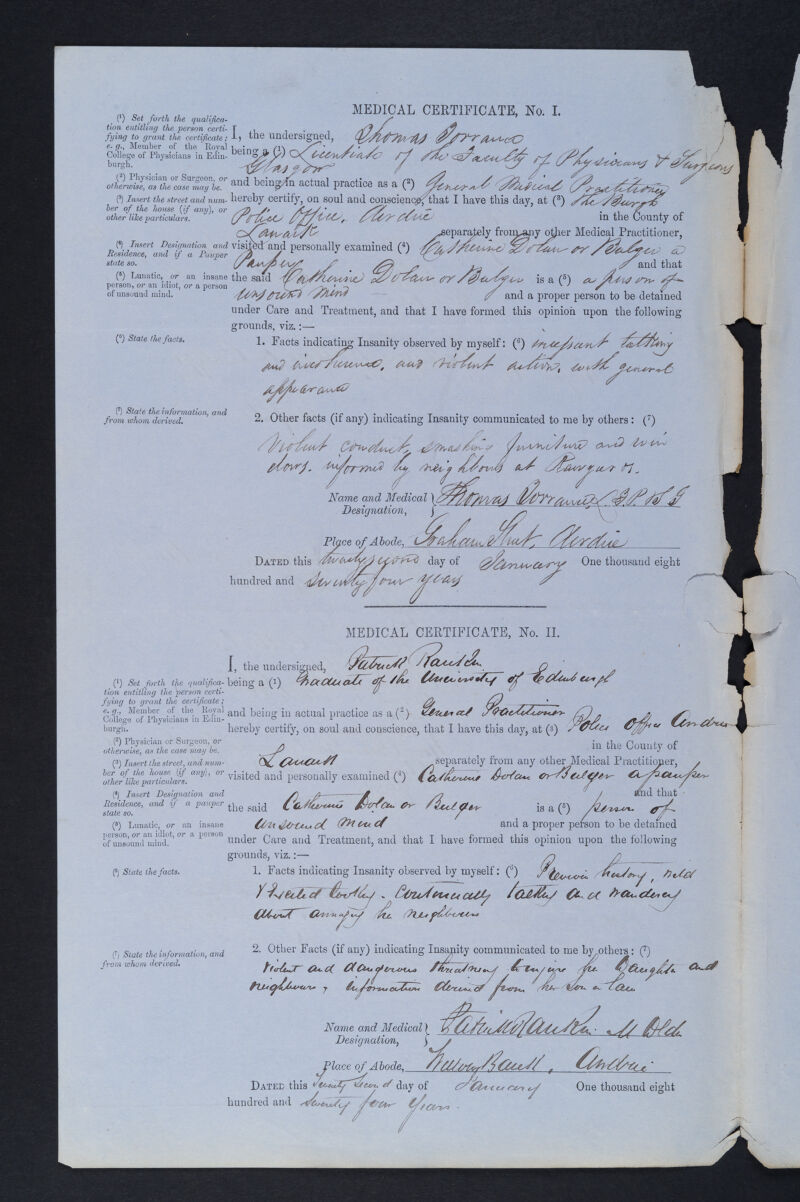 MEDICAL CERTIFICATE, No. I.
(1) Set forth the qualifica-
tion entitling the person certi-
fying to grant the certificate;
e. g., Member of the Royal
College of Physicians in Edin-
burgh.
(2) Physician or Surgeon, or
otherwise, as the case may be.
(3) Insert the street and num-
ber of the house (if any), or
other like particulars.
(4) Insert Designation and
Residence, and if a Pauper
state so.
(5) Lunatic, or an insane
person, or an idiot, or a person
of unsound mind.
(6) State the facts.
(7) State the information, and
from whom derived.
I, the undersigned, Thomas Torrance
being a (1) Licentiate of the Faculty of Physicians & Surgeons
Glasgow
and being in actual practice as a (2) General Medical Practitioner
hereby certify, on soul and conscience, that I have this day, at (3) the Burgh
Police Office, Airdrie in the County of
Lanark separately from any other Medical Practitioner,
visited and personally examined (4) Catherine Dolan or Bulger a
Pauper and that
the said Catherine Dolan or Bulger is a (5) a person of
unsound mind and a proper person to be detained
under Care and Treatment, and that I have formed this opinion upon the following
grounds, viz.:—
1. Facts indicating Insanity observed by myself: (6) incessant talking
and incoherence, and violent action, with general
appearance
2. Other facts (if any) indicating Insanity communicated to me by others: (7)
Violent conduct, smashing furniture and win
dows. informed by neighbours at
Name and Medical Designation, Thomas Torrance
Place of Abode, Graham Street, Airdrie
DATED this twenty second day of January One thousand eight
hundred and seventy four years
MEDICAL CERTIFICATE, No. II.
(1) Set forth the qualifica-
tion entitling the person certi-
fying to grant the certificate;
e. g., Member of the Royal
College of Physicians in Edin-
burgh.
(2) Physician or Surgeon, or
otherwise, as the case may be.
(3) Insert the street, and num-
ber of the house (if any), or
other like particulars.
(4) Insert Designation and
Residence, and if a pauper
state so.
(5) Lunatic, or an insane
person, or an idiot, or a person
of unsound mind.
(6) State the facts.
(7) State the information, and
from whom derived.
I, the undersigned, Patrick Rankin
being a (1) Graduate of the University of Edinburgh
and being in actual practice as a (2) General Practitioner
hereby certify, on soul and conscience, that I have this day, at (3) Police Office Airdrie
in the County of
Lanark separately from any other Medical Practitioner,
visited and personally examined (4) Catherine Dolan or Bulger a pauper
and that
the said Catherine Dolan or Bulger is a (5) person of
unsound mind and a proper person to be detained
under Care and Treatment, and that I have formed this opinion upon the following
grounds, viz.:—
1. Facts indicating Insanity observed by myself: (6) Previous history, wild
& excited looking. Continually talking and wandering
about annoying her neighbours
2. Other Facts (if any) indicating Insanity communicated to me by others: (7)
Violent and dangerous threatening to injure her Daughter and
neighbours, information derived from her son in law
Name and Medical Designation, Patrick Rankin
Place of Abode, Airdrie
DATED this Twenty Second day of January One thousand eight
hundred and Seventy four Years.